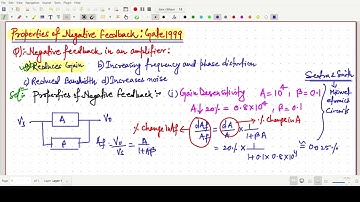 Properties of Negative feedback: Gate 1999
Q: Negative feedback in an amplifier:
a) Reduces Gain b) Increasing frequency and phase distortion
c) Reduced Bandwidth d) Increases noise
Sol: Properties of Negative feedback :- (i) Gain Desensitivity A = 10⁴, β = 0.1
A ↓ 20% = 0.8×10⁴, β = 0.1
Sedra & Smith
Microelectronics
Circuits
% change in Af
% change in A
Vs A Vo
β
Af = Vo/Vs = A/(1+Aβ)
dAf/Af = dA/A × 1/(1+βA)
= 20% × 1/(1+0.1×0.8×10⁴) ≅ 0.025%